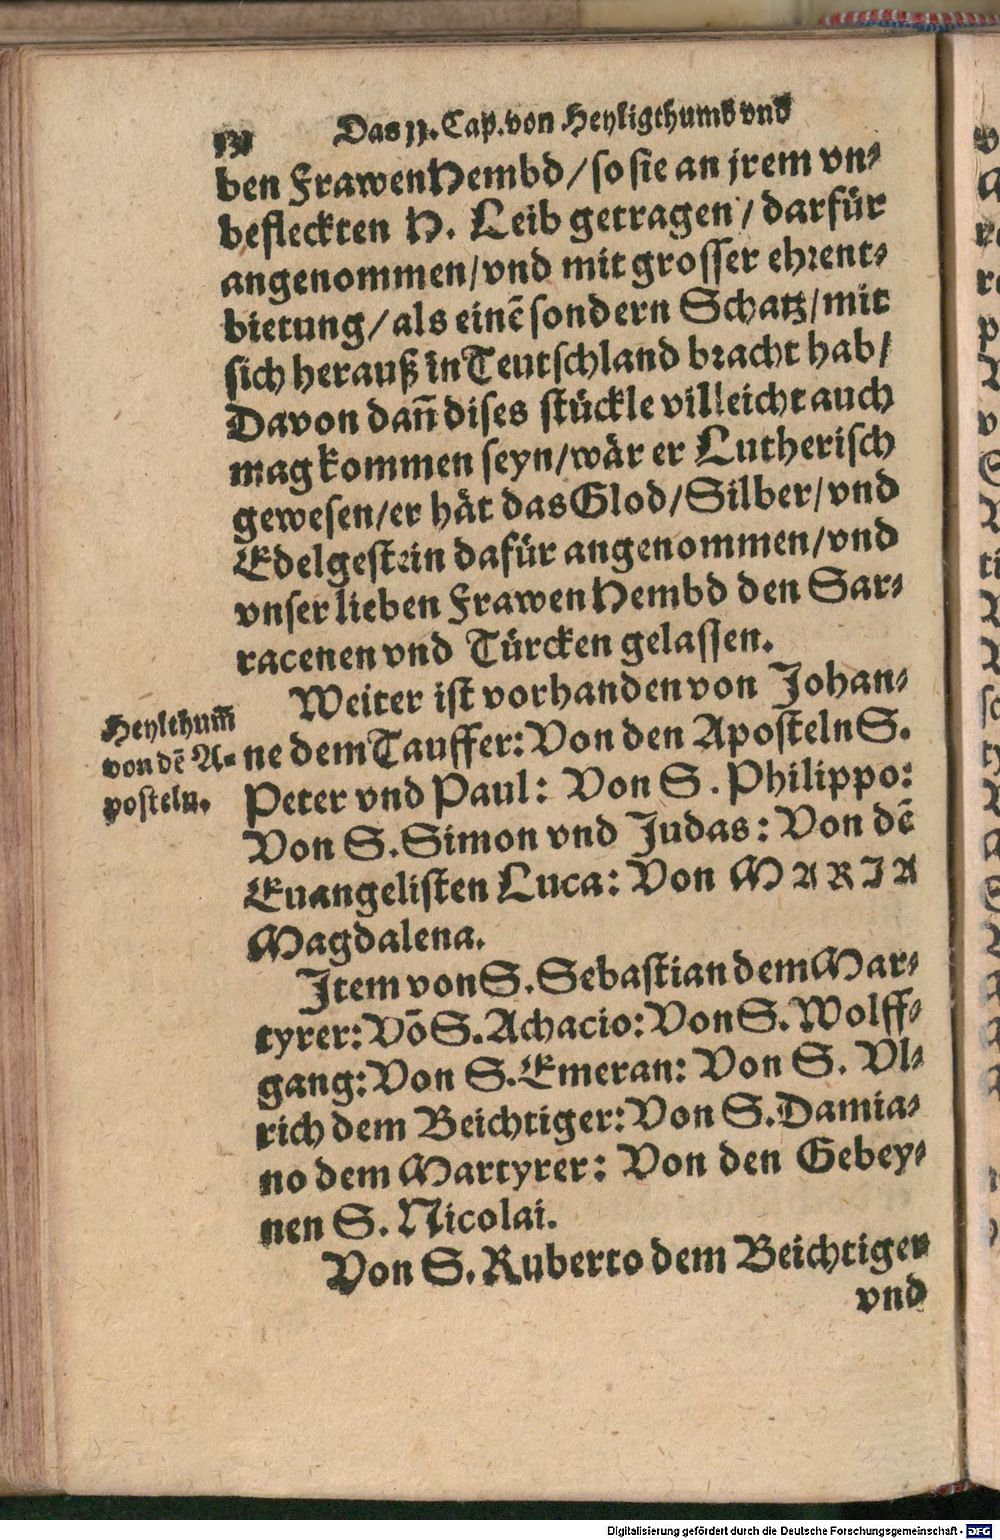 Das 11. Cap. von Heyligthumb vnd
ben Frawen Hembd / so sie an jrem vn⸗
befleckten H. Leib getragen / darfür
angenommen / vnd mit grosser ehrent⸗
bietung / als einē sondern Schatz / mit
sich herauß in Teutschland bracht hab /
Davon dañ dises stückle villeicht auch
mag kommen seyn / wär er Lutherisch
gewesen / er hät das Glod / Silber / vnd
Edelgestein dafür angenommen / vnd
vnser lieben Frawen Hembd den Sar⸗
racenen vnd Türcken gelassen.
Weiter ist vorhanden von Johan⸗
Heylthum̃
von dē A⸗
posteln.
ne dem Tauffer: Von den Aposteln S.
Peter vnd Paul: Von S. Philippo:
Von S. Simon vnd Judas: Von dē
Euangelisten Luca: Von MARIA
Magdalena.
Item von S. Sebastian dem Mar⸗
tyrer: Võ S. Achacio: Von S. Wolff⸗
gang: Von S. Emeran: Von S. Vl⸗
rich dem Beichtiger: Von S. Damia⸗
no dem Martyrer: Von den Gebey⸗
nen S. Nicolai.
Von S. Ruberto dem Beichtiger
vnd
Digitalisierung gefördert durch die Deutsche Forschungsgemeinschaft - DFG